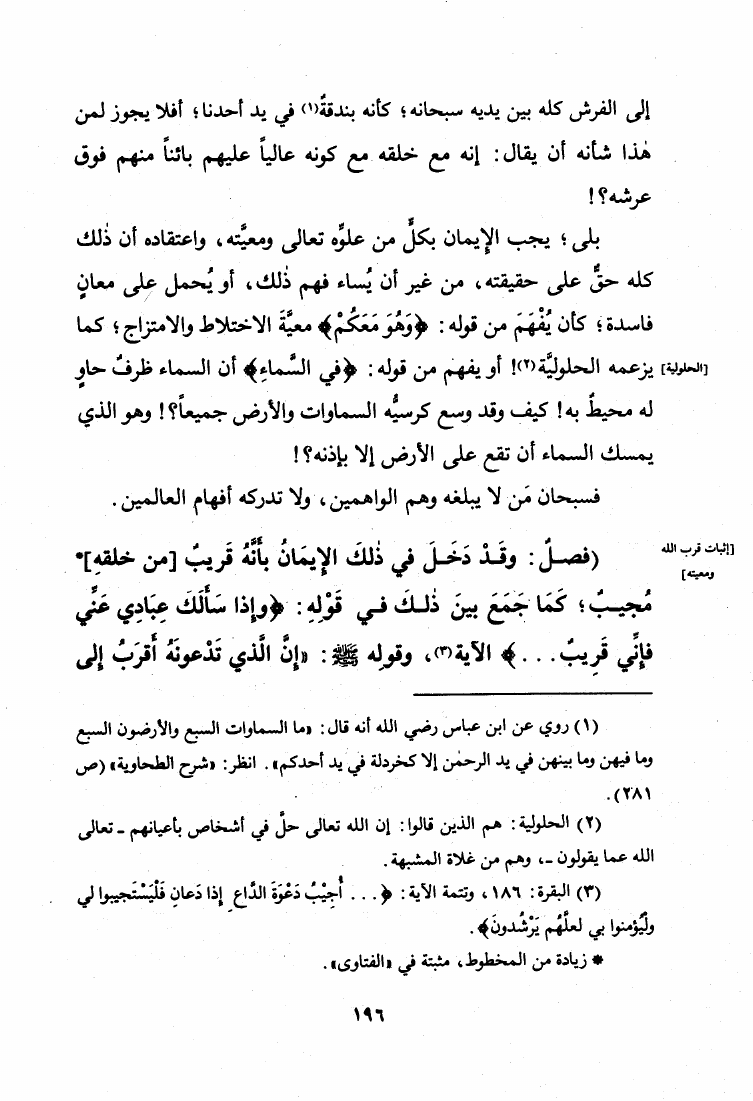 إلى الفرش كله بين يديه سبحانه؛ كأنه بندقةٌ(١) في يد أحدنا؛ أفلا يجوز لمن
هٰذا شأنه أن يقال: إنه مع خلقه مع كونه عالياً عليهم بائناً منهم فوق
عرشه؟!
بلى؛ يجب الإيمان بكلٍّ من علوِّه تعالى ومعيَّته، واعتقاده أن ذٰلك
كله حقٌّ على حقيقته، من غير أن يُساء فهم ذٰلك، أو يُحمل على معانٍ
فاسدة؛ كأن يُفْهَمَ من قوله: ﴿وَهُوَ مَعَكُمْ﴾ معيَّةَ الاختلاط والامتزاج؛ كما
[الحلولية] يزعمه الحلوليَّة(٢)! أو يفهم من قوله: ﴿في السَّماءِ﴾ أن السماء ظرفٌ حاوٍ
له محيطٌ به! كيف وقد وسع كرسيُّه السماوات والأرض جميعاً؟! وهو الذي
يمسك السماء أن تقع على الأرض إلا بإذنه؟!
فسبحان مَن لا يبلغه وهم الواهمين، ولا تدركه أفهام العالمين.
[إثبات قرب الله
ومعيته]
(فصلٌ: وقَدْ دَخَلَ في ذٰلكَ الإِيمَانُ بأَنَّهُ قَريبٌ [من خلقهِ]*
مُجيبٌ؛ كَمَا جَمَعَ بينَ ذٰلكَ في قَوْلِهِ: ﴿وإِذا سَأَلَكَ عِبَادِي عَنِّي
فإِنِّي قَرِيبٌ...﴾ الآية(٣)، وقولِه ﷺ: «إِنَّ الَّذي تَدْعونَهُ أَقرَبُ إلى
(١) روي عن ابن عباس رضي الله أنه قال: «ما السماوات السبع والأرضون السبع
وما فيهن وما بينهن في يد الرحمٰن إلا كخردلة في يد أحدكم». انظر: «شرح الطحاوية» (ص
٢٨١).
(٢) الحلولية: هم الذين قالوا: إن الله تعالى حلَّ في أشخاص بأعيانهم ـ تعالى
الله عما يقولون ـ، وهم من غلاة المشبهة.
(٣) البقرة: ١٨٦، وتتمة الآية: ﴿... أُجِيْبُ دَعْوَةَ الدَّاعِ إذا دَعانِ فَلْيَسْتَجيبوا لي
ولْيُؤمنوا بي لعلَّهُم يَرْشُدونَ﴾.
* زيادة من المخطوط، مثبتة في «الفتاوى».
١٩٦